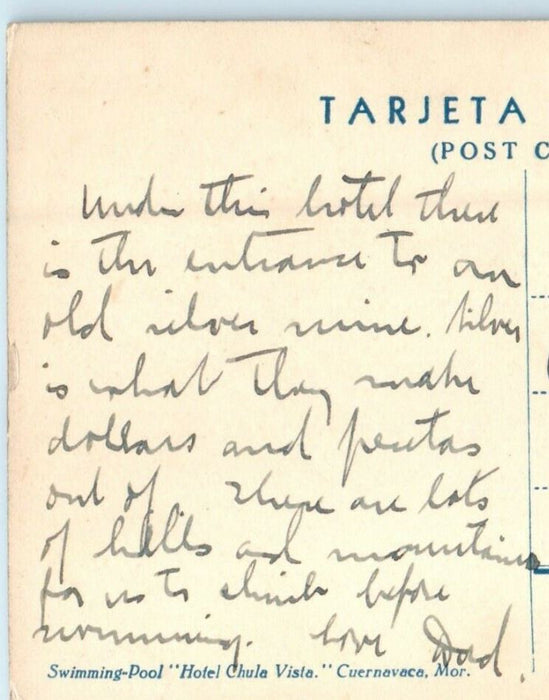 TARJETA
(POST C
Under this hotel there
is the entrance to an
old silver mine. Silver
is what they make
dollars and pesetas
out of. There are lots
of hills and mountains
for us to climb before
swimming. Love Dad.
Swimming-Pool "Hotel Chula Vista." Cuernavaca, Mor.